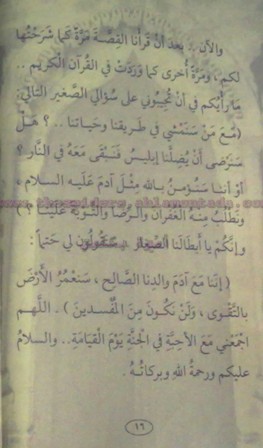 والآن .. بعد أن قرأنا القصة مرة كما شرحتها
لكم، ومرة أخرى كما وردت في القرآن الكريم ..
ما رأيكم في أن تجيبوني على سؤالي الصغير التالي:
(مع من سنمشي في طريقنا وحياتنا .. ؟ هل
سنرضى أن يضلنا إبليس فنبقى معه في النار؟
أو أننا سنؤمن بالله مثل آدم عليه السلام،
ونطلب منه الغفران والرضا والتوبة علينا؟)
وإنكم يا أبطالنا الصغار ستقولون لي حتماً:
(إننا مع آدم والدنا الصالح، سنعمر الأرض
بالتقوى، ولن نكون من المفسدين). اللهم
اجمعني مع الأحبة في الجنة يوم القيامة.. والسلام
عليكم ورحمة الله وبركاته.
١٦